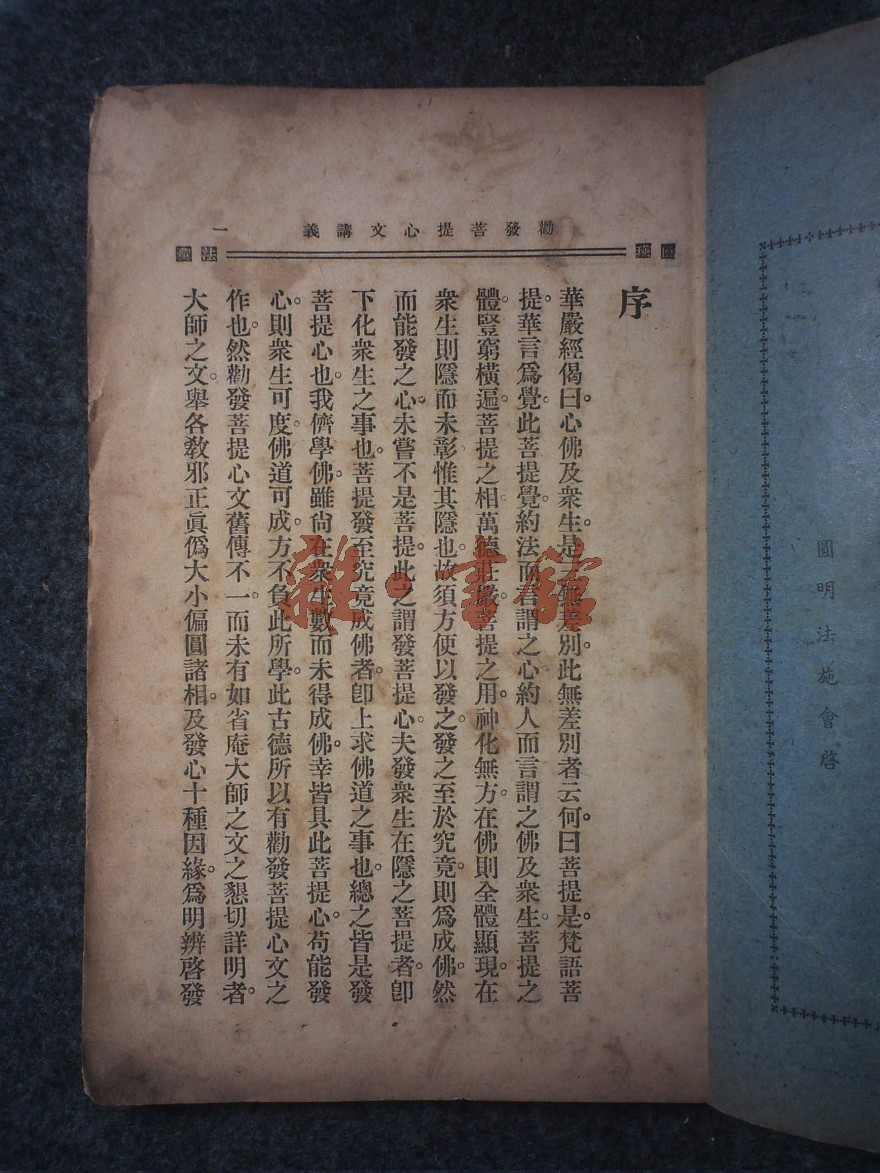 圓明法施會啓
勸發菩提心文講義 一
序
華嚴經偈曰。心佛及衆生。是三無差別。此無差別者云何。曰菩提是。梵語菩
提。華言爲覺。此菩提覺。約法而言謂之心。約人而言謂之佛及衆生。菩提之
體。豎窮橫遍。菩提之相。萬德莊嚴。菩提之用。神化無方。在佛則全體顯現。在
衆生則隱而未彰。惟其隱也。故須方便以發之。發之至於究竟。則爲成佛。然
而能發之心。未嘗不是菩提。此之謂發菩提心。夫發衆生在隱之菩提者。卽
下化衆生之事也。菩提發至究竟成佛者。卽上求佛道之事也。總之皆是發
菩提心也。我儕學佛。雖尙在衆生數而未得成佛。幸皆具此菩提心。苟能發
心。則衆生可度。佛道可成。方不負此所學。此古德所以有勸發菩提心文之
作也。然勸發菩提心文。舊傳不一。而未有如省庵大師之文之懇切詳明者。
大師之文。舉各敎邪正眞僞大小偏圓諸相。及發心十種因緣。爲明辨啓發
雜·書館